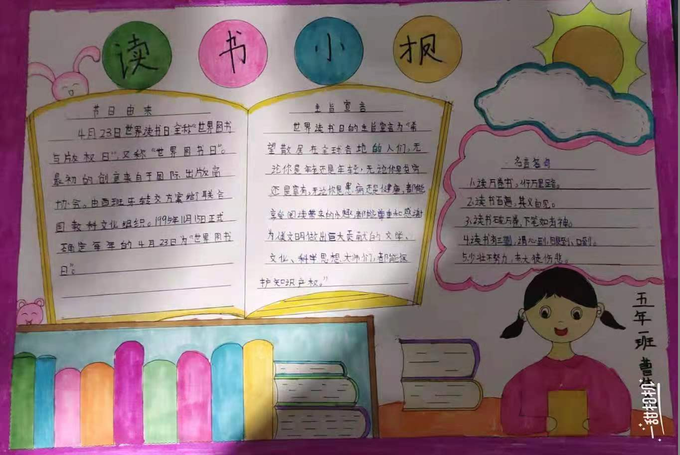 读书小报
节日由来
4月23日世界读书日全称"世界图书
与版权日",又称"世界图书日"。
最初的创意来自于国际出版商
协会。由西班牙转交方案给了联合
国教科文化组织。1995年11月15日正式
确定每年的4月23日为"世界图书
日"。
主旨宣言
世界读书日的主旨宣言为"希
望散居在全球各地的人们,无
论你是年轻还是年老,无论你是贫穷
还是富有,无论你是患病还是健康,都能
享受阅读带来的乐趣,都能尊重和感谢
为人类文明做出巨大贡献的文学、
文化、科学思想大师们,都能保
护知识产权。"
名言警句
1.读万卷书,行万里路。
2.读书百遍,其义自见。
3.读书破万卷,下笔如有神。
4.读书有三到,谓心到,眼到,口到。
5.少壮不努力,老大徒伤悲。
五年一班 曹
一甜相机